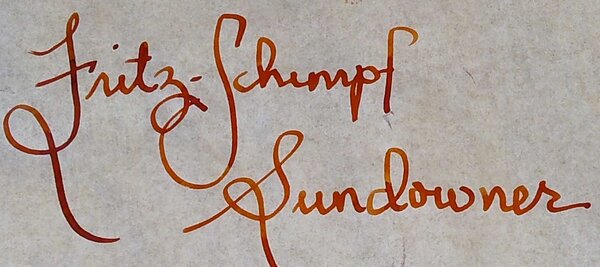 Fritz-Schimpf
Sundowner